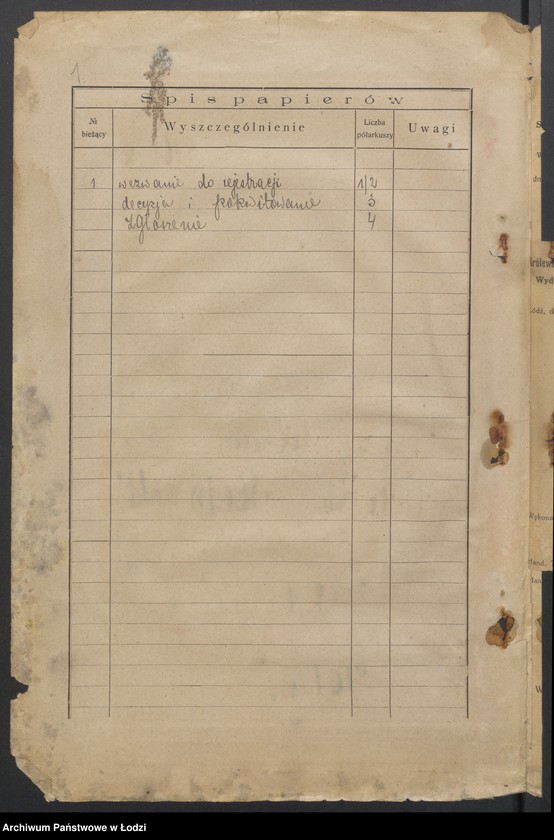 1
Spis papierów
№ bieżący
Wyszczególnienie
Liczba półarkuszy
Uwagi
1 wezwanie do rejestracji 1/2
decyzja i pokwitowanie 3
Zgłoszenie 4
Królew
Wyd
Łódź, d
Wykona
Archiwum Państwowe w Łodzi